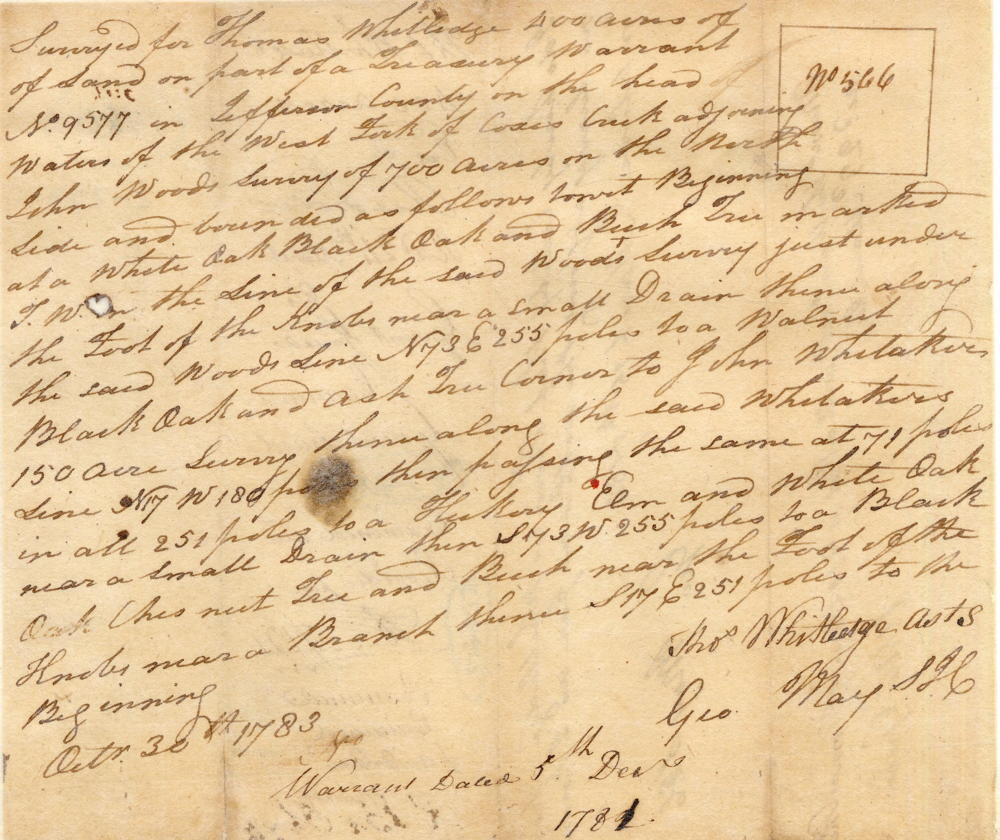 Surveyed for Thomas Whitledge 400 acres of
of Land on part of a Treasury Warrant
No. 9577 in Jefferson County on the head of
Waters of the West Fork of Coxes Creek adjoining
John Woods Survey of 700 acres on the North
Side and bounded as follows towit Beginning
at a White Oak Black Oak and Beech Tree marked
T. W. in the Line of the said Woods Survey just under
the Foot of the Knobs near a small Drain thence along
the said Woods Line N73E 255 poles to a Walnut
Black Oak and Ash Tree Corner to John Whitakers
150 acre Survey thence along the said Whitakers
Line N17W 180 poles then passing the same at 71 poles
in all 251 poles to a Hickory Elm and White Oak
near a small Drain then S73W 255 poles to a Black
Oak Chesnut Tree and Beech near the Foot of the
Knobs near a Branch thence S17E 251 poles to the
Beginning
Thos Whitledge Asts
Octr. 30th 1783
Geo. May SJC
Warrant Dated 5th Decr
1781
No 566